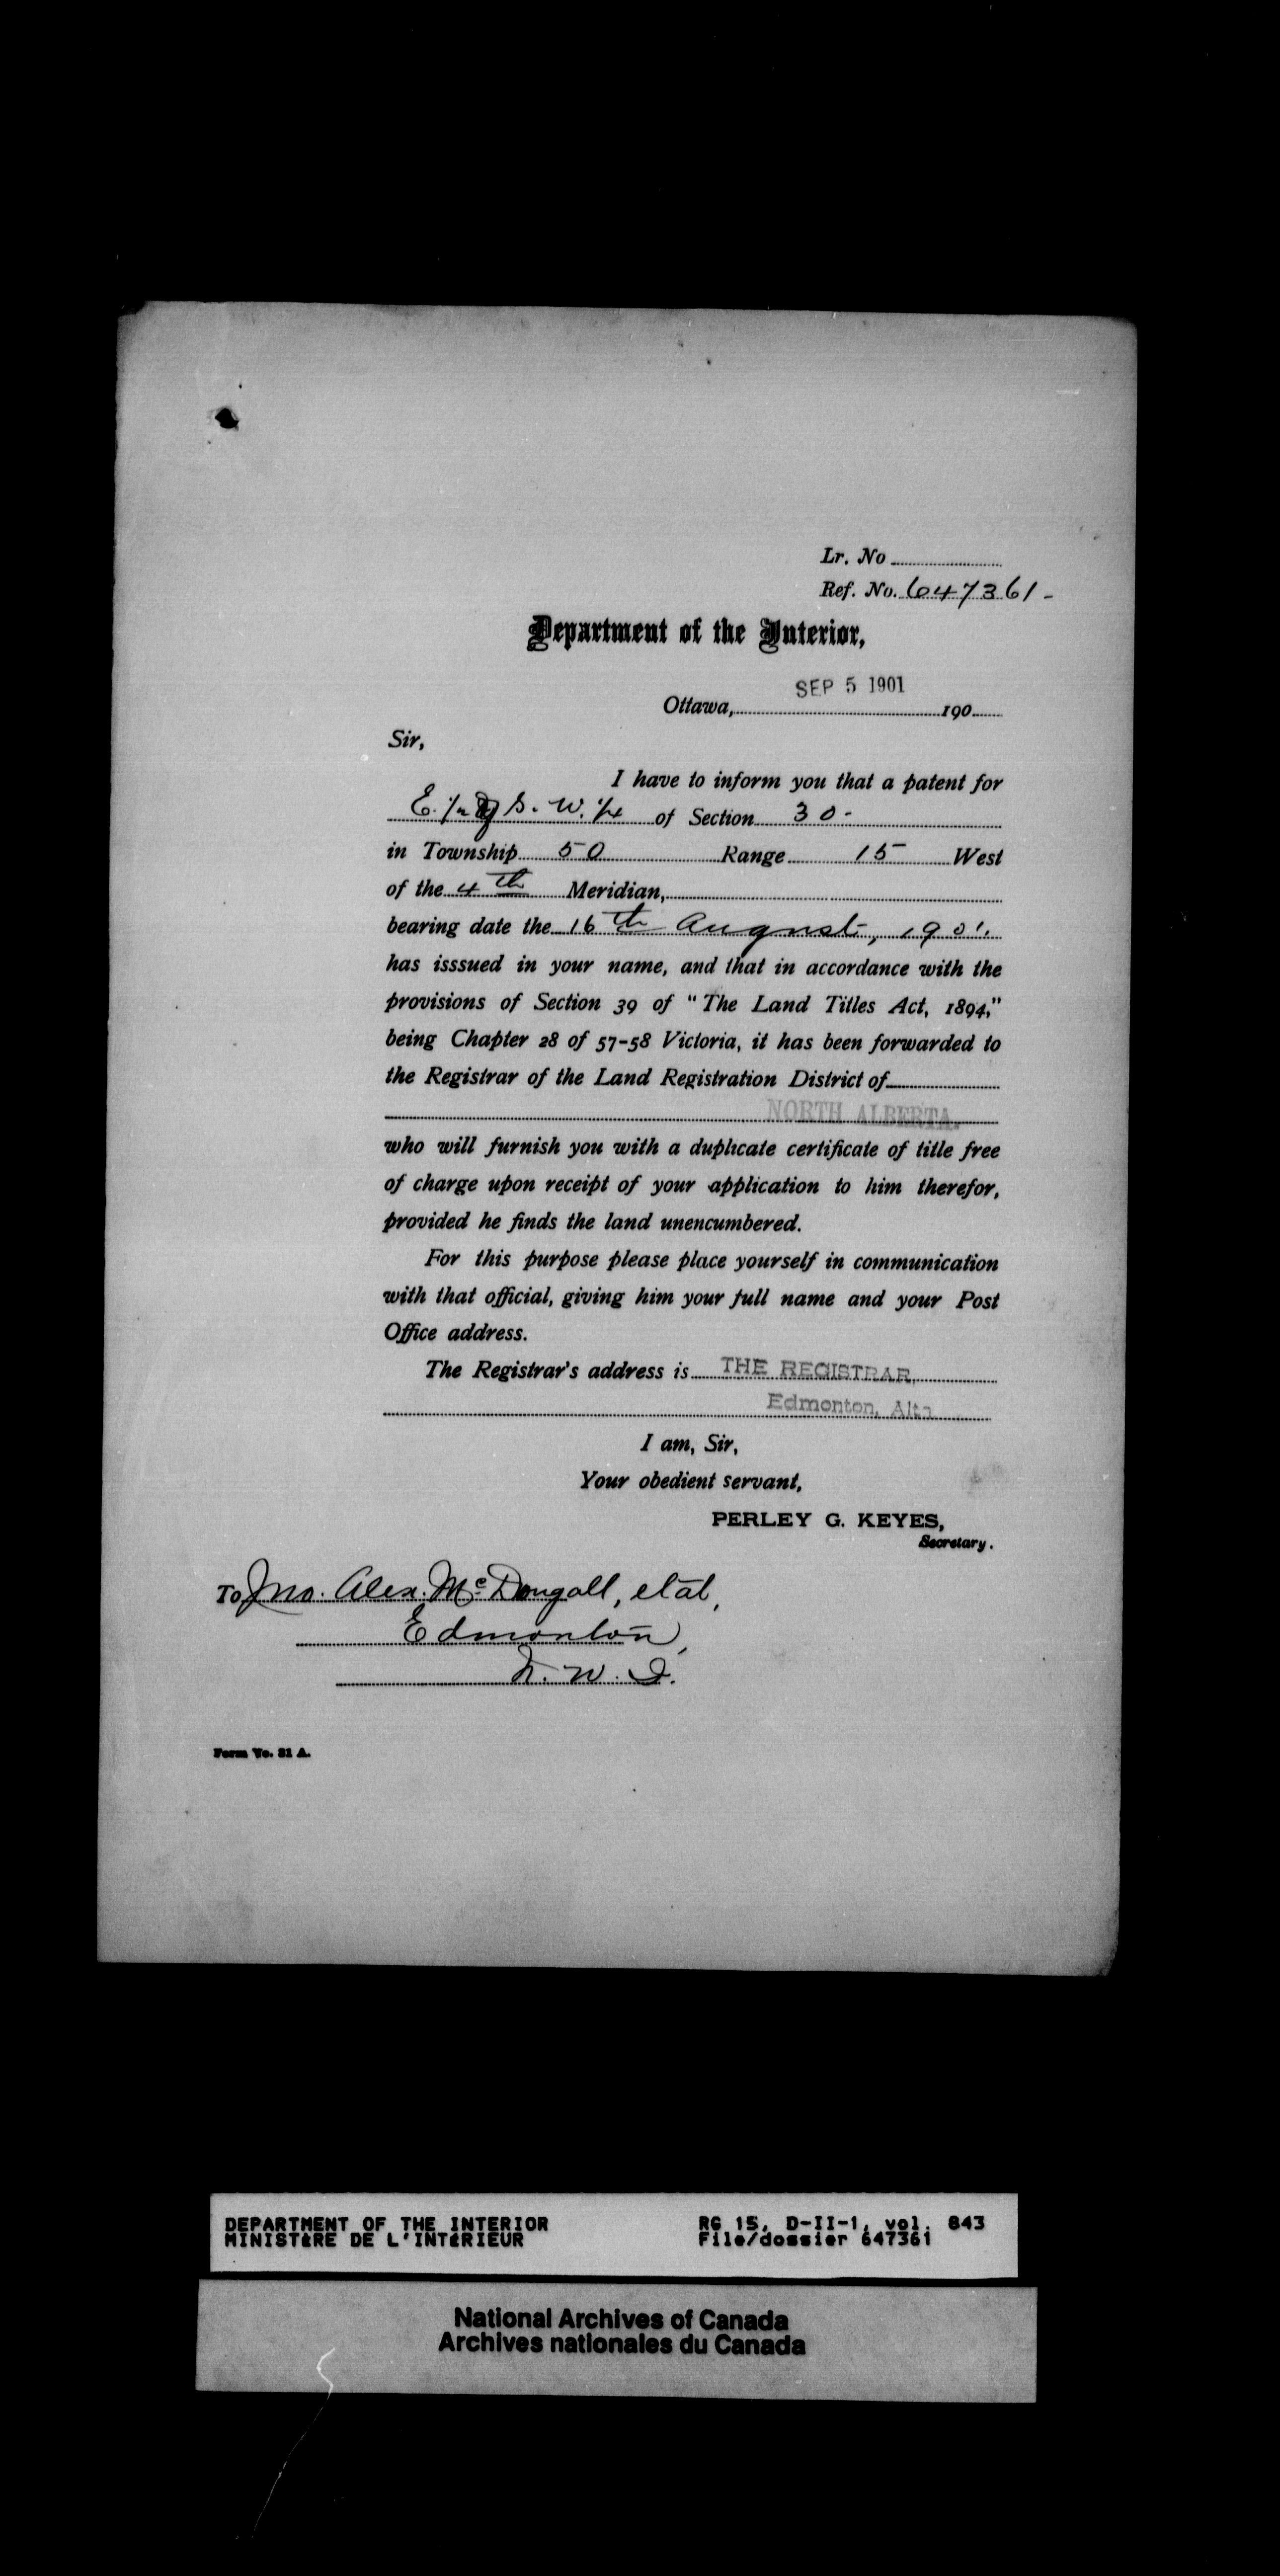 Lr. No
Ref. No. 647361-
Department of the Interior,
SEP 5 1901
Ottawa, 190
Sir,
I have to inform you that a patent for
E. 1/2 of S. W. 1/4 of Section 30-
in Township 50 Range 15 West
of the 4th Meridian,
bearing date the 16th August, 1901.
has isssued in your name, and that in accordance with the
provisions of Section 39 of "The Land Titles Act, 1894,"
being Chapter 28 of 57-58 Victoria, it has been forwarded to
the Registrar of the Land Registration District of
NORTH ALBERTA.
who will furnish you with a duplicate certificate of title free
of charge upon receipt of your application to him therefor,
provided he finds the land unencumbered.
For this purpose please place yourself in communication
with that official, giving him your full name and your Post
Office address.
The Registrar's address is THE REGISTRAR,
Edmonton, Alta
I am, Sir,
Your obedient servant,
PERLEY G. KEYES,
Secretary.
To Jno. Alex. McDougall, et al,
Edmonton,
N. W. T.
Form No. 31 A.
DEPARTMENT OF THE INTERIOR RG 15, D-II-1, vol. 843
MINISTÈRE DE L'INTÉRIEUR File/dossier 647361
National Archives of Canada
Archives nationales du Canada